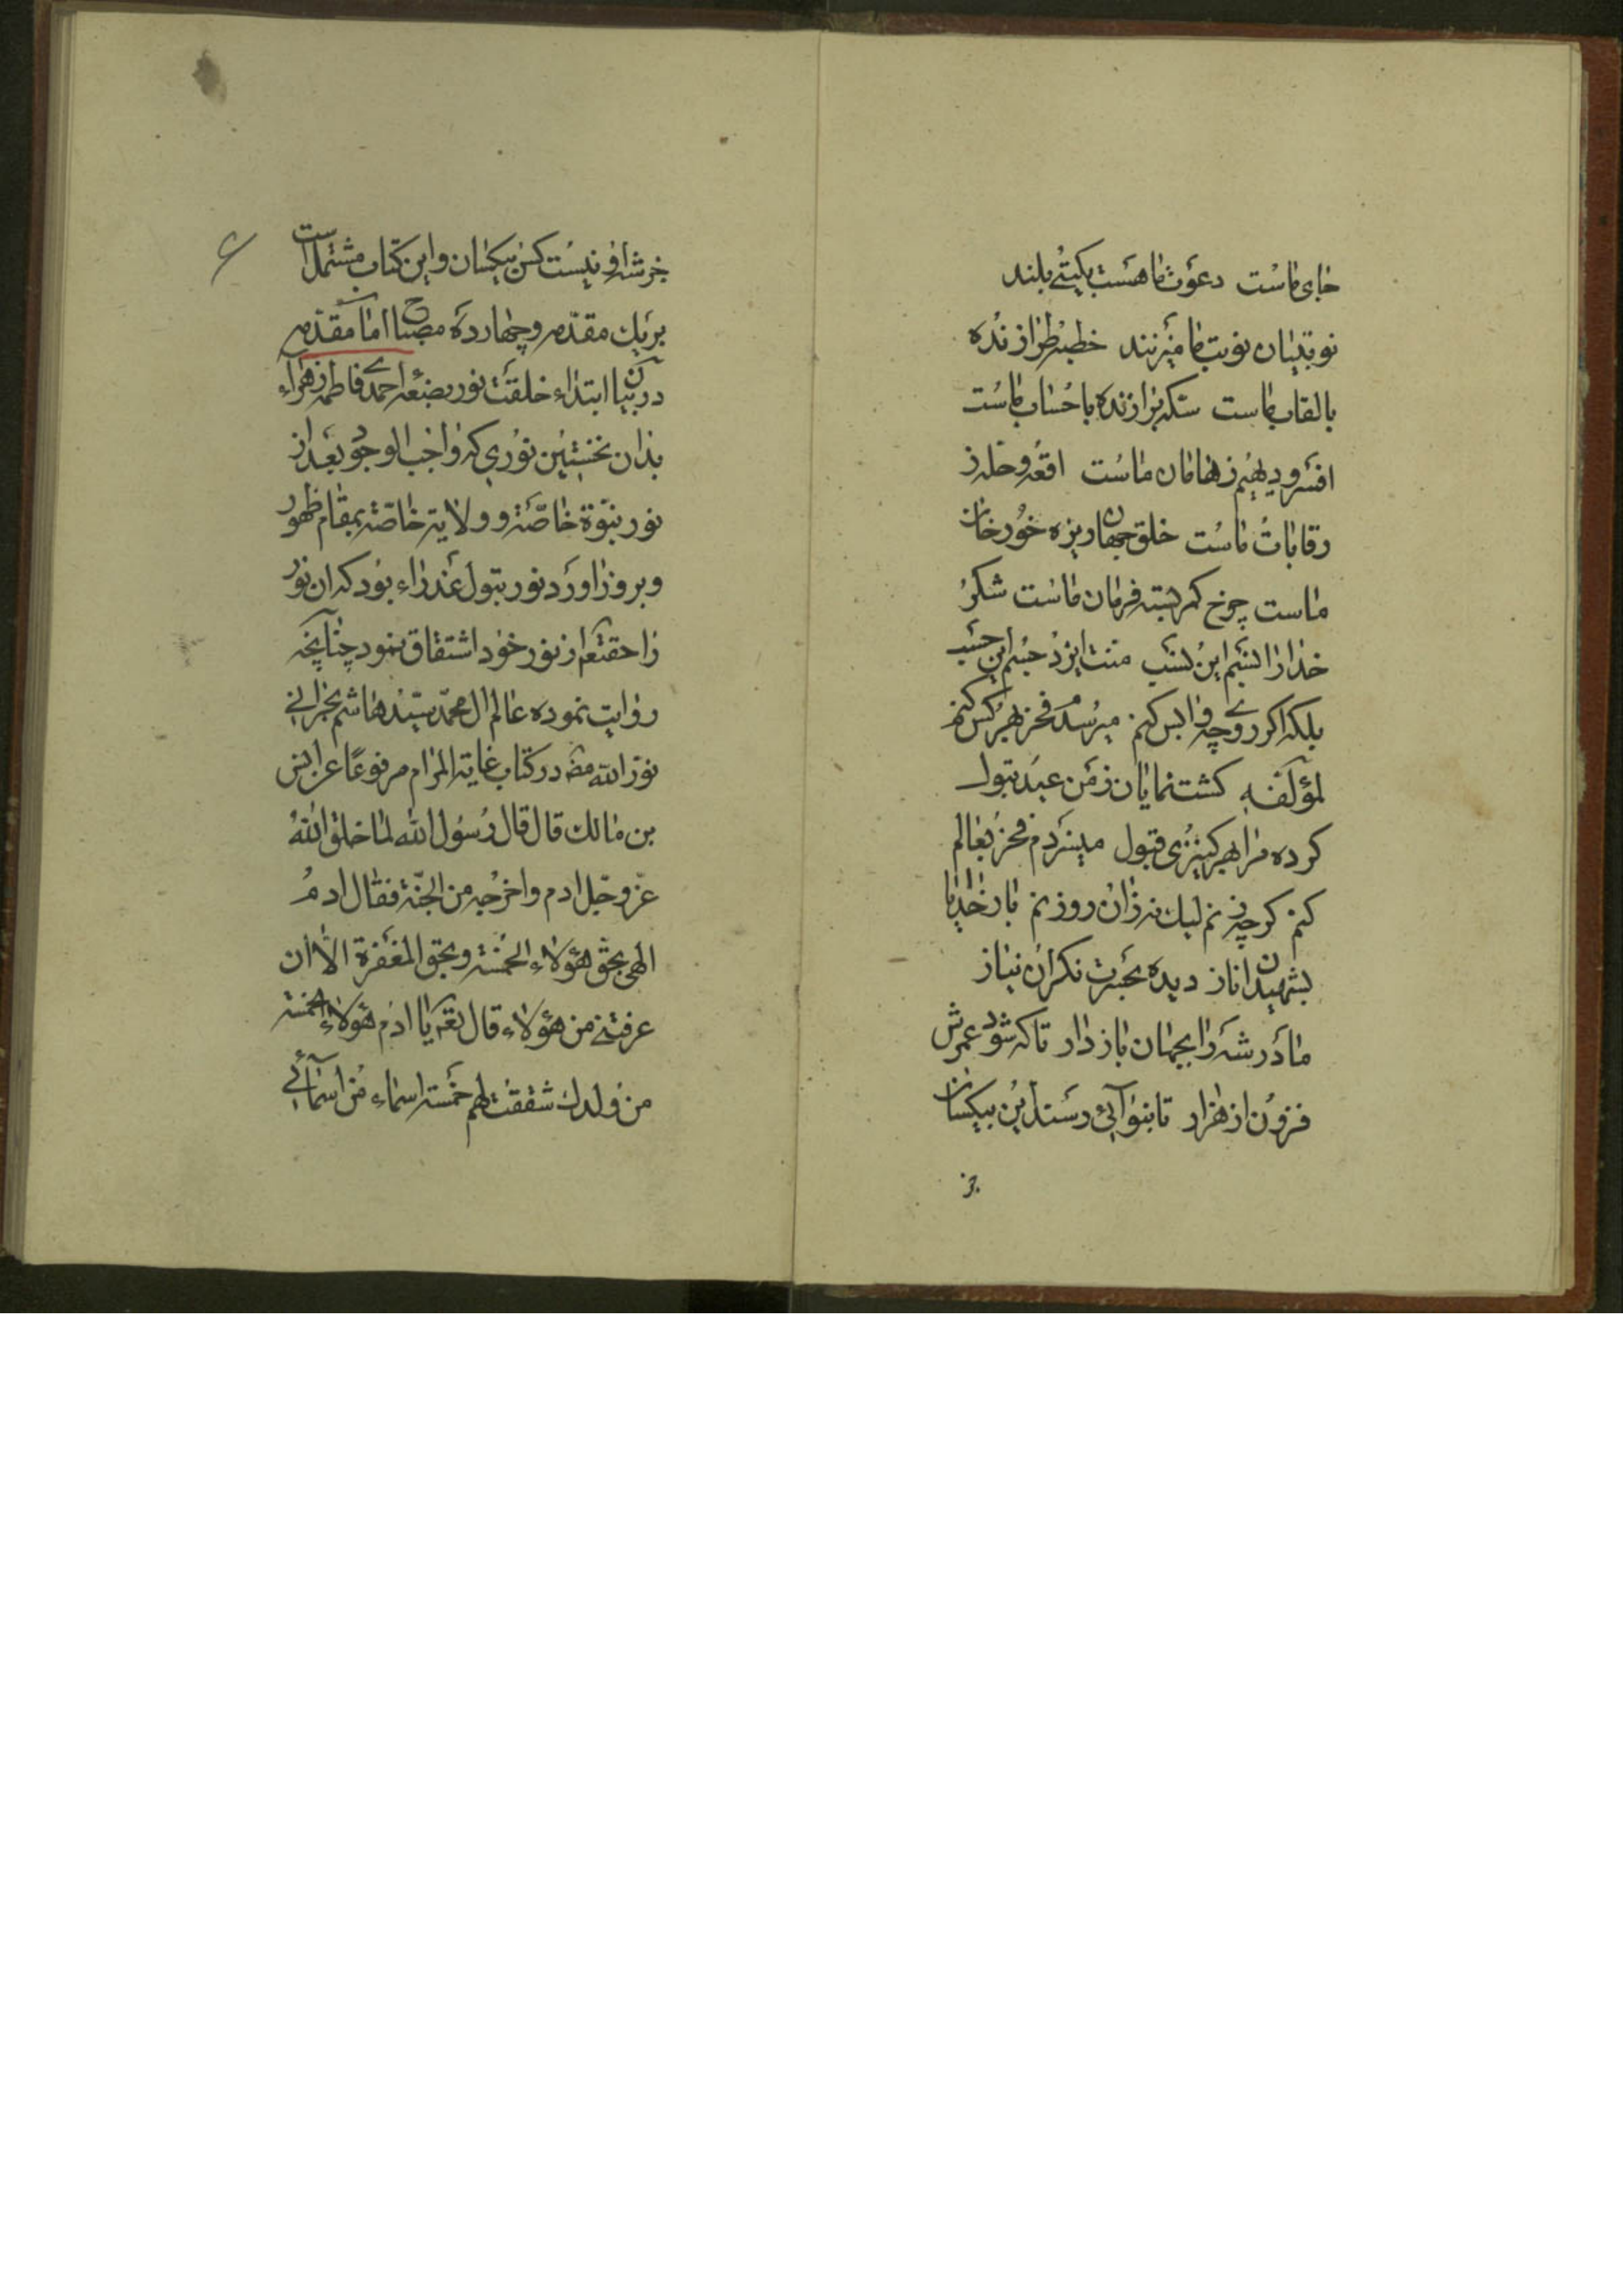 جای ماست دعوت ما هست بگیتی بلند
نوبتیان نوبت ما میزنند خطبه طرازنده
بالقاب ماست سکه برازنده باحساب ماست
افسر و دیهیم ز هامان ماست اقعه و حله ز
رقابات ماست خلق جهان ریزه خور خان
ماست چرخ کمر بسته فرمان ماست شکر
خدا را النسیم این نسب منت ایزد حسبم این حسب
بلکه اگر روی چه واپس کنم میرسدم فخر بهر کس کنم
لمؤلفه گشت نمایان ز من عبد بتول
کرده مرا بهر کنیزی قبول میسزدم فخر بعالم
کنم گرچه زنم لیک نه زان روز نم بار خدایا
بشهیدان ناز دیده بحسرت نگران نیاز
مادر شه را بجهان باز دار تا که شود عمرش
فزون از هزار تا بنوائی رسند این بیکسان
جز
جز شه او نیست کس بیکسان و این کتاب مشتمل است
بریک مقدمه و چهارده مصباح اما مقدمه
در بیان ابتداء خلقت نور بضعه احمدی فاطمه زهراء
بدان نخستین نوری که واجب الوجود بعد از
نور نبوة خاصه و ولایة خاصه بمقام ظهور
و بروز اورد نور بتول عذراء بود که ان نور
را حقتعم از نور خود اشتقاق نمود چنانچه
روایت نموده عالم ال محمد سید هاشم بحرانی
نور الله مضه در کتاب غایة المرام مرفوعا عن انس
بن مالك قال قال رسول الله لما خلق الله
عز وجل ادم واخرجه من الجنة فقال ادم
الهی بحق هؤلاء الخمسة وبحق المغفرة الا ان
عرفتنی من هؤلاء قال تعم یا ادم هؤلاء الخمسة
من ولدك شققت لهم خمسة اسماء من اسمائی